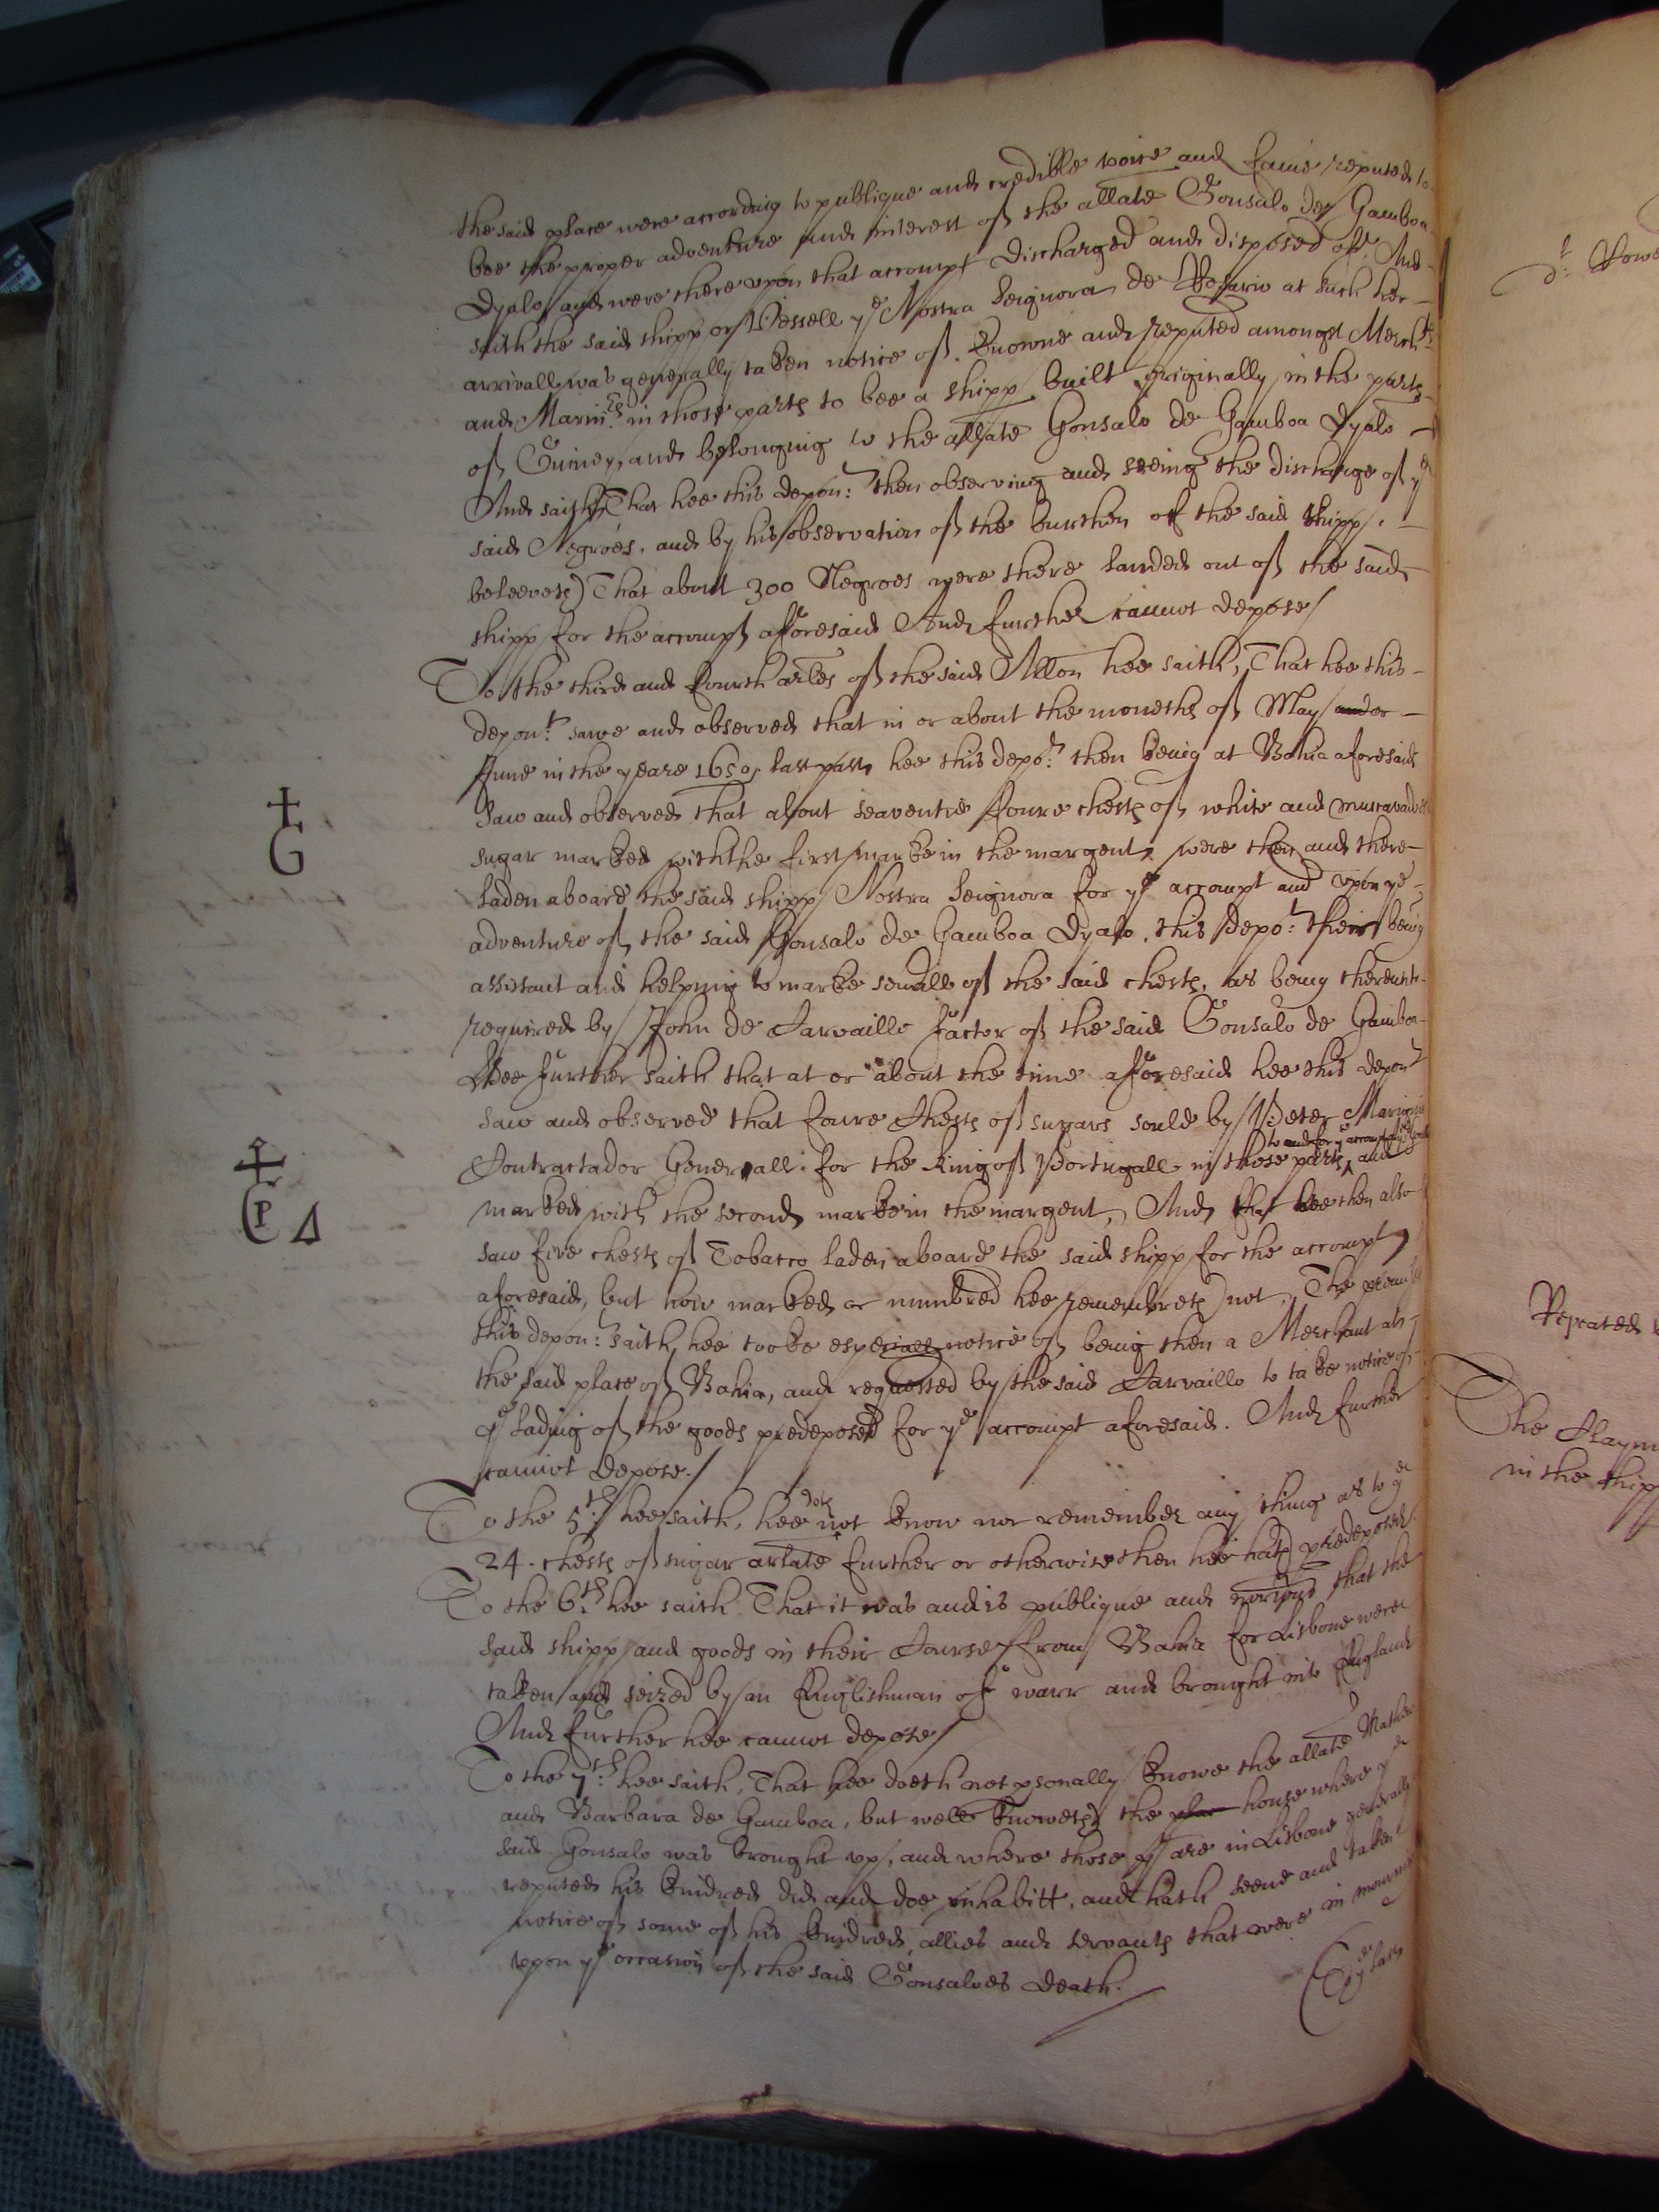 the said place were according to publique and credible voice and fame reputed to
bee the proper adventure and interest of the allate Gonsalo de Gamboa
Dyalo and were there upon that accompt discharged and disposed off. And
saith the said shipp or Vessell ye Nostra Seignora de Rosario at such her
arrivall was generally taken notice of. knowne and reputed amongst Merchts
and Marinrs in those parts to bee a shipp built originally in the parts
of Guiney, and belonging to the allate Gonsalo de Gamboa Dyalo
And saith That hee this depont: then observing and seeing the discharge of ye
said Negroes, and by his observation of the burthen of the said shipp,
beleeveth That about 300 Negroes were there landed out of the said
shipp for the accompt afforesaid And further cannot depose/
To the third and fourth arles of the said Allon hee saith, That hee this
depont: sawe and observed that in or about the moneths of May and or
June in the yeare 1650 last past, hee this depot: then being at Bahia aforesaid
saw and observed that about seaventie foure chests of white and muscavadoes
sugar marked with the first marke in the margent, were then and there
laden aboard the said shipp Nostra Seignora for ye accompt and upon ye
adventure of the said Gonsalo de Gamboa Dyalo, this depot: then being
assistant and helping to marke severall of the said chests, as being thereunto
required by John de Carvaillo factor of the said Gonsalo de Gamboa
Hee further saith that at or about the time afforesaid hee this depont
saw and observed that foure chests of sugars sould by Peter
Contractador Generall for the King of Portugall in those parts, and
to and for ye accompt
marked with the second marke in the margent, And that hee then also
saw five chests of Tobacco laden aboard the said shipp for the accompt
aforesaid, but how marked or numbred hee remembreth not. The
this depon:t saith hee tooke especiall notice of being then a Merchant att
the said place of Bahia, and requested by the said Carvaillo to take notice of
ye lading of the goods predeposed for ye accompt aforesaid. And further
cannot depose./
To the 5th: hee saith, hee doth not know nor remember any thing as to ye
24. chests of sugar arlate further or otherwise then hee hath predeposed.
To the 6th hee saith That it was and is publique and notorious that the
said shipp and goods in their Course from Bahia for Lisbone were
taken and seized by an Englishman of warr and brought into England
And further hee cannot depose/
To the 7th: hee saith, That hee doeth not psonally knowe the allate Mathew
and Barbara de Gamboa, but well knoweth the place house where ye
said Gonsalo was brought up, and where those yt are in Lisbone generally
reputed his kindred did and doe inhabitt, and hath seene and taken
notice of some of his kindred, allies and servants that were in
upon ye occasion of the said Gonsaloes death.
To ye last
G
CP Δ
Repeated
The Claym
in the shipp